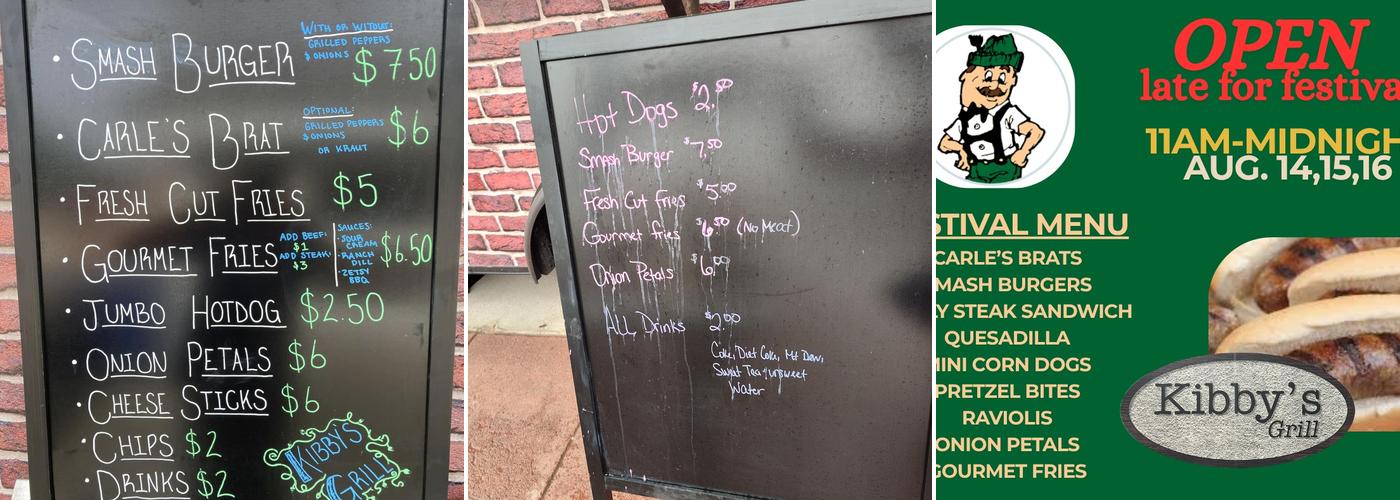 WITH OR WITOUT:
GRILLED PEPPERS
$ ONIONS
• SMASH BURGER $7.50
OPTIONAL:
GRILLED PEPPERS
$ ONIONS
OR KRAUT
• CARLE'S BRAT $6
• FRESH CUT FRIES $5
• GOURMET FRIES $6.50
ADD BEEF:
$1
ADD STEAK:
$3
SAUCES:
• SOUR CREAM
• RANCH DILL
• ZETSY BBQ
• JUMBO HOTDOG $2.50
• ONION PETALS $6
• CHEESE STICKS $6
• CHIPS $2
• DRINKS $2
KIBBY'S
GRILL
Hot Dogs $2.50
Smash Burger $7.50
Fresh Cut fries $5.00
Gourmet fries $6.50 (No Meat)
Onion Petals $6.00
ALL Drinks $2.00
Coke, Diet Coke, Mt Dew,
Sweet Tea / unsweet
Water
OPEN
late for festiva
11AM-MIDNIGH
AUG. 14,15,16
STIVAL MENU
CARLE'S BRATS
MASH BURGERS
Y STEAK SANDWICH
QUESADILLA
MINI CORN DOGS
PRETZEL BITES
RAVIOLIS
ONION PETALS
GOURMET FRIES
Kibby's
Grill